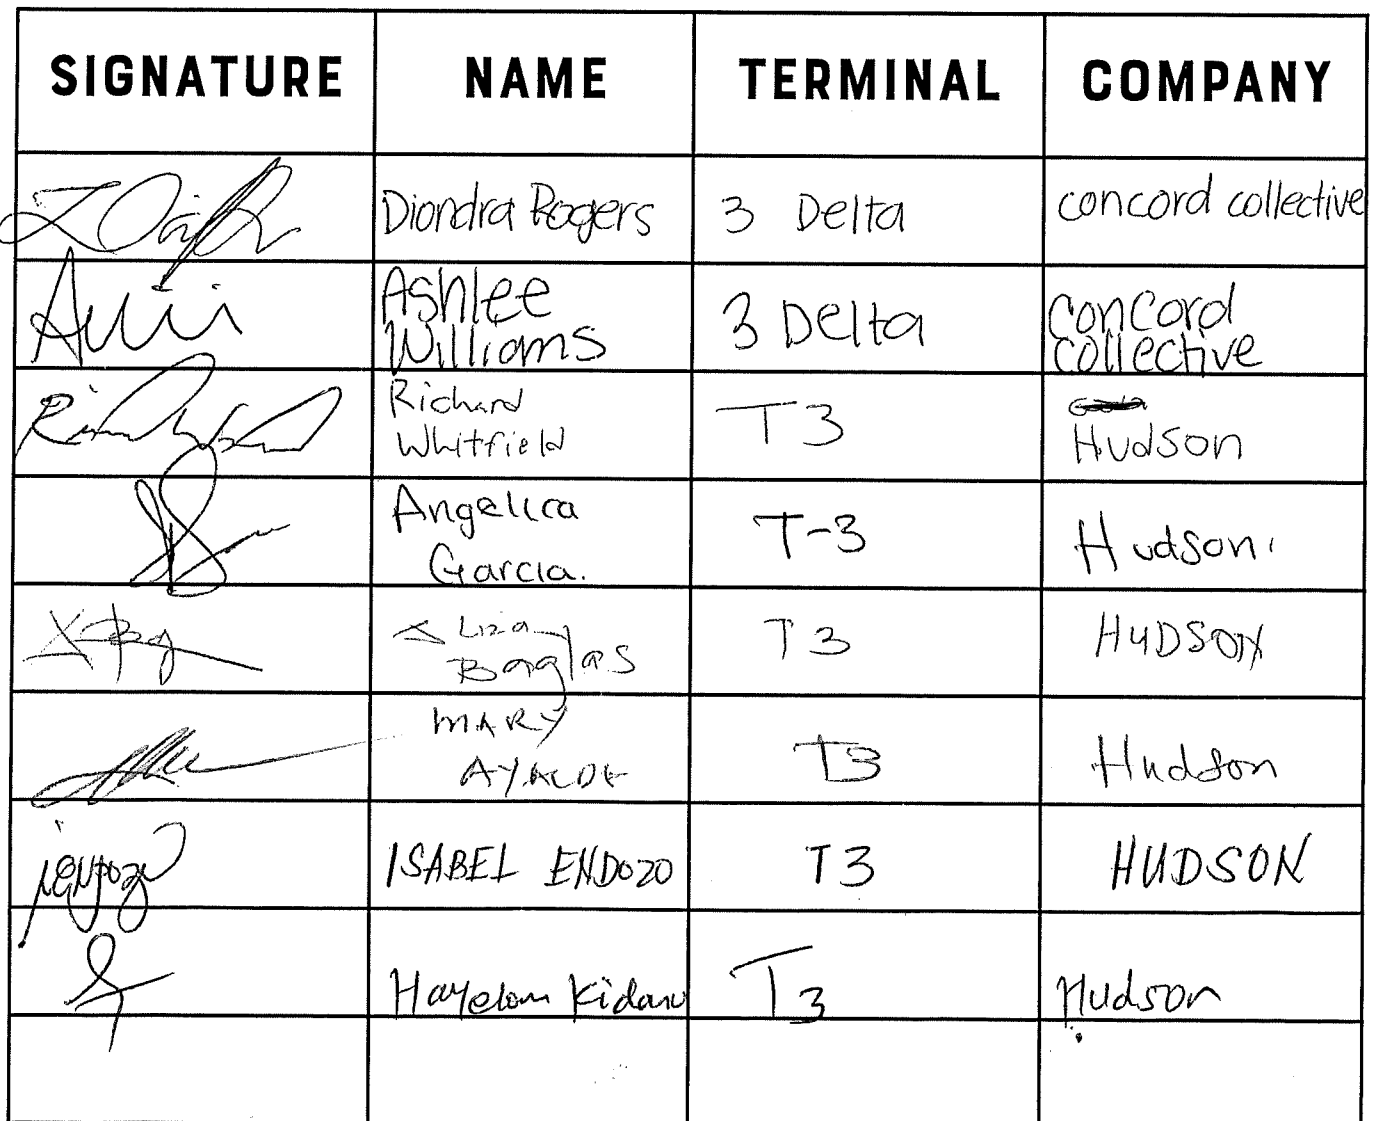 SIGNATURE NAME TERMINAL COMPANY
Diondra Rogers 3 Delta concord collective
Ashlee
Williams 3 Delta concord
collective
Richard
Whitfield T3 Hudson
Angelica
Garcia. T-3 Hudson
Liza
T3 HUDSON
MARY
T3 Hudson
ISABEL ENDOZO T3 HUDSON
Hayelom Kidanu T3 Hudson